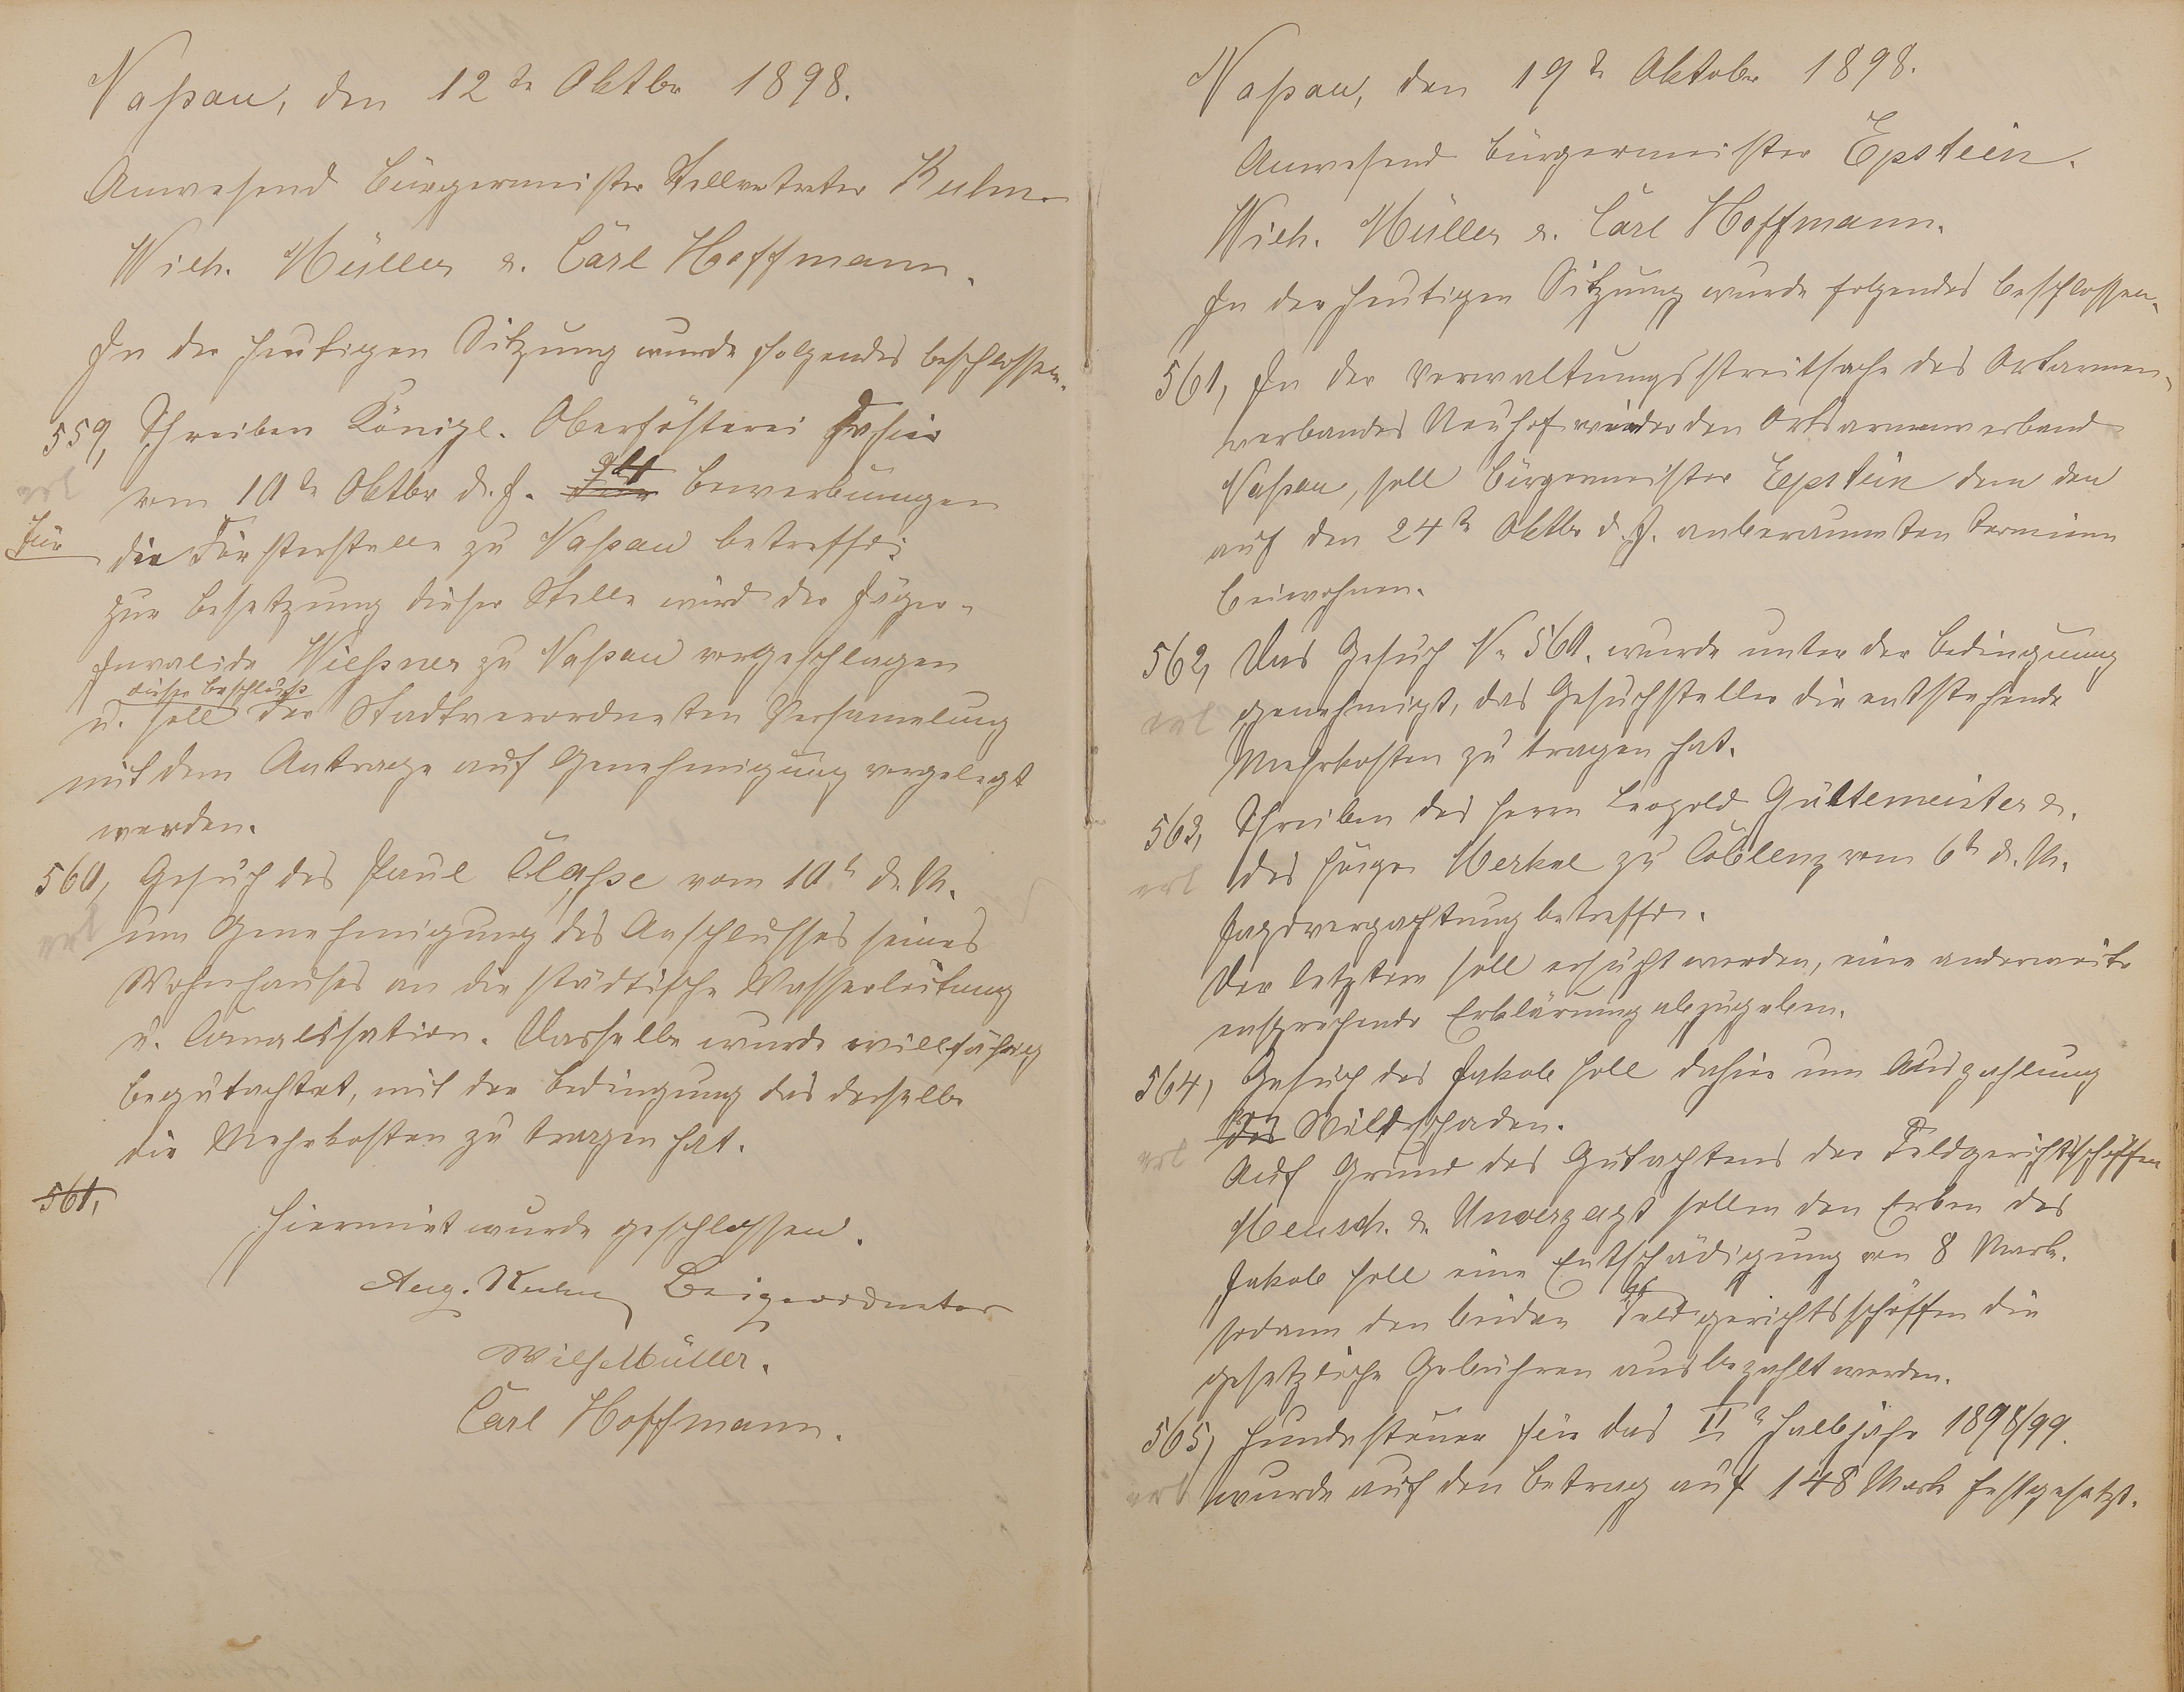 Naßau, den 12te Oktbr 1898.
Anwesend Bürgermeister Stellvertreter Kuhn.
Wilh. Müller u. Carl Hoffmann.
In der heutigen Sitzung wurde folgendes beschlossen.
559, Schreiben Königl. Oberfösterei dahier
erl
vom 10te Oktbr d. J. Bewerbungen
für
die Försterstelle zu Naßau betreffd:
Zur Besetzung dieser Stelle wird der Jäger-
Invalide Wießner zu Naßau vorgeschlagen
dieser Beschluß
u. soll der Stadtverordneten Versamelung
mit dem Antrage auf Genehmigung vorgelegt
werden.
560, Gesuch des Paul Claße vom 10t d. M.
erl
um Genehmigung des Anschlusses seines
Wohnhauses an die städtische Wasserleitung
u. Canalisation. Dasselbe wurde willfährig
begutachtet, mit der Bedingung das derselbe
die Mehrkosten zu tragen hat.
561,
Hiermiet wurde geschlossen.
Aug. Kuhn Beigeordneter
Wilh Müller.
Carl Hoffmann.
Naßau, den 19te Oktober 1898.
Anwesend Bürgermeister Epstein.
Wilh. Müller u. Carl Hoffmann.
In der heutigen Sitzung wurde folgendes beschlossen.
561, In der Verwaltungsstreitsache des Ortarmen-
verbandes Neuhof wieder den Ortsarmenverband
Naßau, soll Bürgermeister Epstein dem den
auf den 24te Oktbr d. J. anberaumten Termine
beiwohnen.
562, Das Gesuch No 560. wurde unter der Bedingung
erl
genehmigt, das Gesuchsteller die entstehende
Mehrkosten zu tragen hat.
563, Schreiben des Herrn Leopold Güttemeister u.
erl
des Hugo Merkel zu Coblenz vom 6t d. M.
Jagdverpachtung betreffd.
Der letztere soll ersucht werden, eine anderweite
ensprechende Erklärung abzugeben.
564, Gesuch des Jakob Holl dahier um Auszahlung
des Wildschaden.
erl
Auf Grund des Gutachtens der Feldgerichtsschöffen
Meusch. u. Unverzagt sollen den Erben des
Jakob Holl eine Entschädigung von 8 Mark.
sodann den beiden Feldgerichtsschöffen die
gesetzliche Gebühren ausbezahlt werden.
565, Hundesteuer für das IIe Halbjahr 1898/99.
erl
wurde auf den Betrag auf 148 Mark festgesetzt.